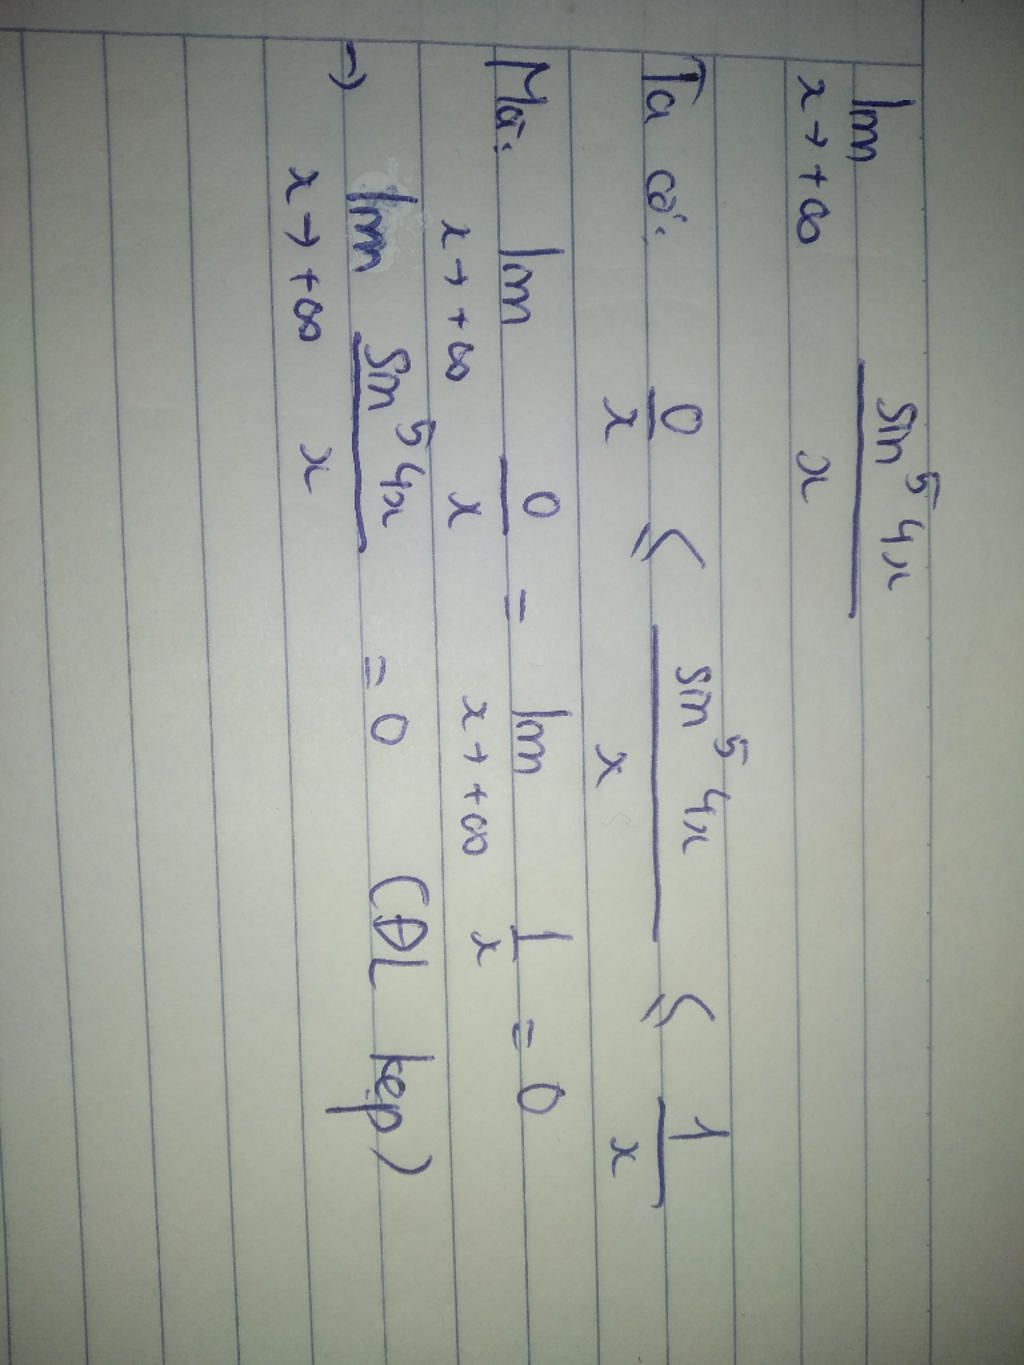 lim sin⁵4x
x→+∞ x
Ta có: 0/x ≤ sin⁵4x/x ≤ 1/x
Mà: lim 0/x = lim 1/x = 0
x→+∞ x→+∞
→ lim sin⁵4x/x = 0 (ĐL kẹp)
x→+∞